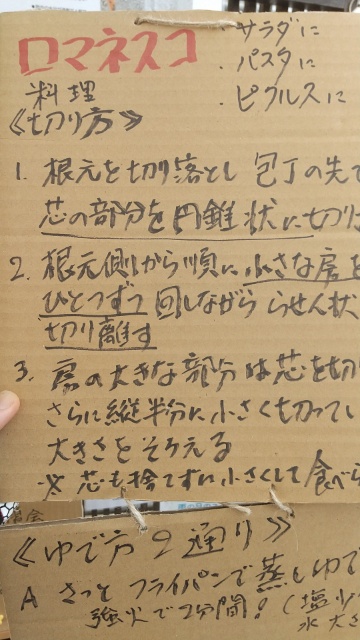 ロマネスコ
・サラダに
・パスタに
・ピクルスに
料理
《切り方》
1. 根元を切り落とし 包丁の先で
芯の部分を円錐状に切り
2. 根元側から順に小さな房を
ひとつずつ回しながららせん状
切り離す
3. 房の大きな部分は芯を切
さらに縦半分に小さく切ってい
大きさをそろえる
※ 芯も捨てずに小さくして食べら
《ゆで方2通り》
A さっと フライパンで蒸しゆで
強火で2分間! (塩少
水大さ